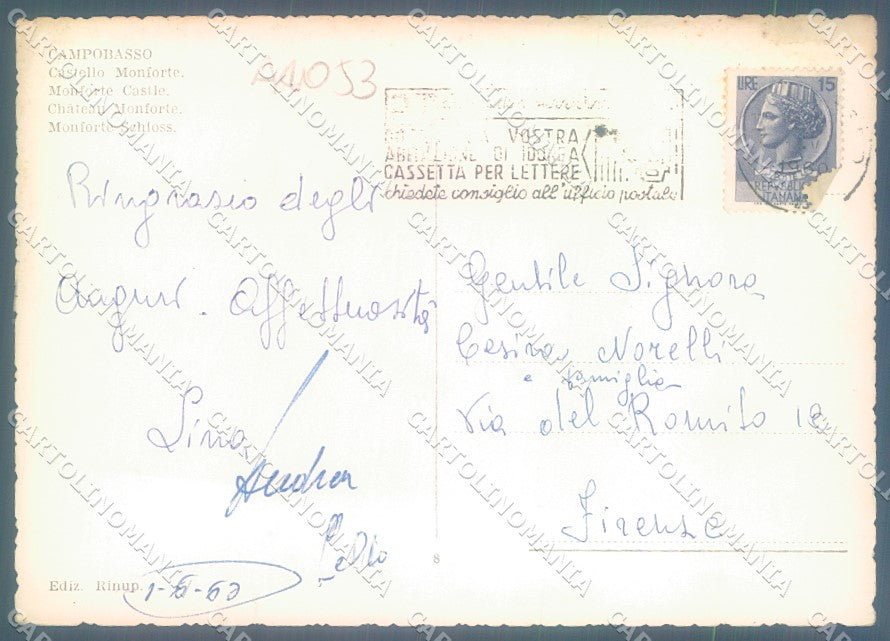 CAMPOBASSO
Castello Monforte.
Monforte Castle.
Château Monforte.
Monforte Schloss.
AA.053
VOSTRA
ABITAZIONE DI IDONEA
CASSETTA PER LETTERE
chiedete consiglio all'ufficio postale
LIRE 15
REPUBBLICA
ITALIANA
Ringrazio degli
Auguri. Affettuosità
Lina
Andrea
Gentile Signora
Cesira Norelli
e famiglia
Via del Romito
Firenze
8
Ediz. Rinup.
CARTOLINOMANIA